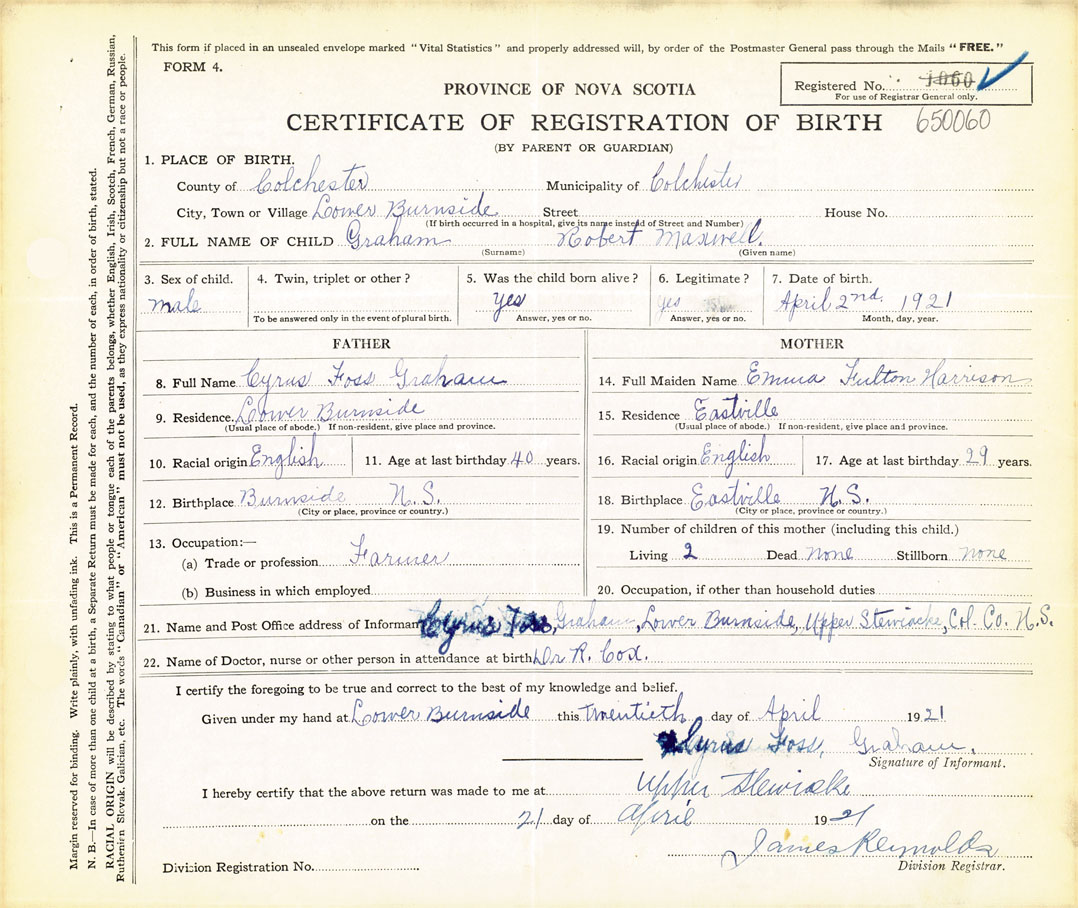 This form if placed in an unsealed envelope marked "Vital Statistics" and properly addressed will, by order of the Postmaster General pass through the Mails "FREE."
FORM 4.
Registered No. 1060
For use of Registrar General only.
650060
PROVINCE OF NOVA SCOTIA
CERTIFICATE OF REGISTRATION OF BIRTH
(BY PARENT OR GUARDIAN)
1. PLACE OF BIRTH.
County of Colchester Municipality of Colchester
City, Town or Village Lower Burnside Street House No.
(If birth occurred in a hospital, give its name instead of Street and Number)
2. FULL NAME OF CHILD Graham Robert Maxwell.
(Surname) (Given name)
3. Sex of child. 4. Twin, triplet or other? 5. Was the child born alive? 6. Legitimate? 7. Date of birth.
male yes yes April 2nd. 1921
To be answered only in the event of plural birth. Answer, yes or no. Answer, yes or no. Month, day, year.
FATHER MOTHER
8. Full Name Cyrus Foss Graham 14. Full Maiden Name Emma Fulton Harrison
9. Residence. Lower Burnside 15. Residence Eastville
(Usual place of abode.) If non-resident, give place and province. (Usual place of abode.) If non-resident, give place and province.
10. Racial origin English 11. Age at last birthday 40 years. 16. Racial origin English 17. Age at last birthday 29 years.
12. Birthplace Burnside N.S. 18. Birthplace Eastville N.S.
(City or place, province or country.) (City or place, province or country.)
13. Occupation:— 19. Number of children of this mother (including this child.)
(a) Trade or profession Farmer Living 2 Dead none Stillborn none
(b) Business in which employed 20. Occupation, if other than household duties
21. Name and Post Office address of Informant Cyrus Foss, Graham, Lower Burnside, Upper Stewiacke, Col. Co. N.S.
22. Name of Doctor, nurse or other person in attendance at birth Dr R. Cox.
I certify the foregoing to be true and correct to the best of my knowledge and belief.
Given under my hand at Lower Burnside this twentieth day of April 1921
Cyrus Foss, Graham.
Signature of Informant.
I hereby certify that the above return was made to me at Upper Stewiacke
on the 21 day of April 1921
James Reynolds
Division Registrar.
Division Registration No.
Margin reserved for binding. Write plainly, with unfading ink. This is a Permanent Record.
N. B.—In case of more than one child at a birth, a Separate Return must be made for each, and the number of each, in order of birth, stated.
RACIAL ORIGIN will be described by stating to what people or tongue each of the parents belongs, whether English, Irish, Scotch, French, German, Russian,
Ruthenian Slovak, Galician, etc. The words "Canadian" or "American" must not be used, as they express nationality or citizenship but not a race or people.